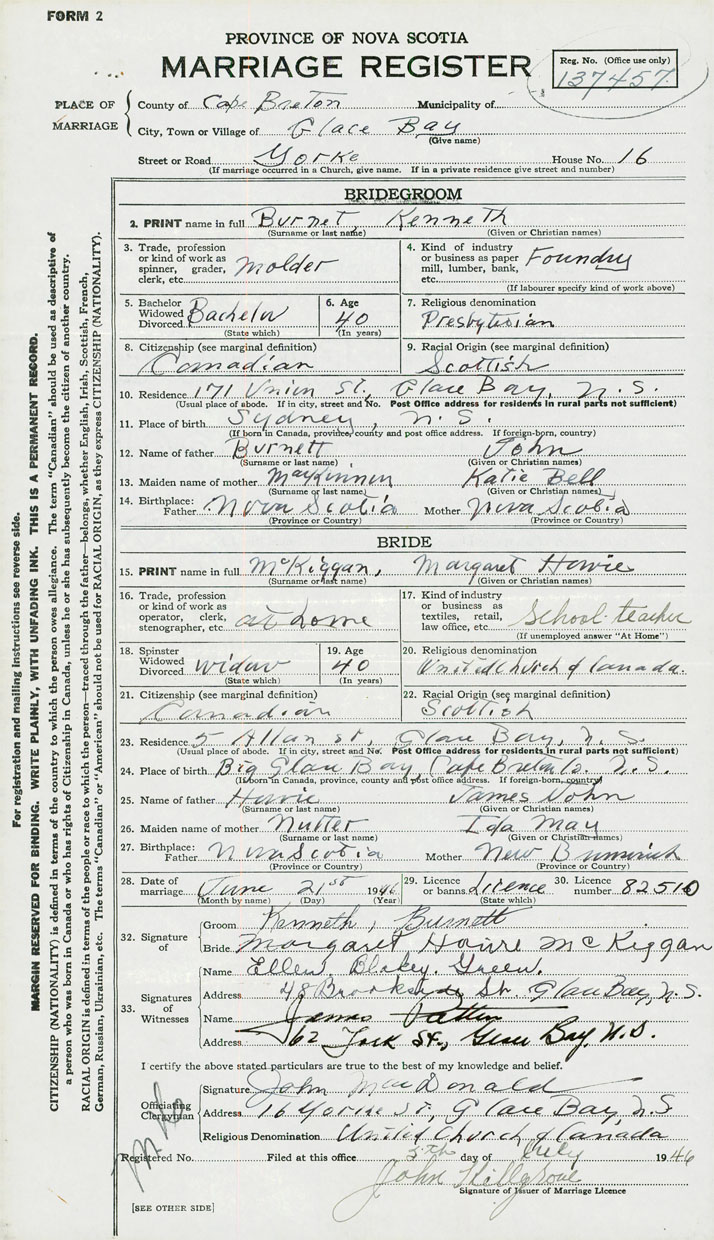 FORM 2
PROVINCE OF NOVA SCOTIA
MARRIAGE REGISTER
Reg. No. (Office use only)
137457
PLACE OF MARRIAGE
County of Cape Breton Municipality of
City, Town or Village of Glace Bay
(Give name)
Street or Road Yorke House No. 16
(If marriage occurred in a Church, give name. If in a private residence give street and number)
BRIDEGROOM
2. PRINT name in full Burnet, Kenneth
(Surname or last name) (Given or Christian names)
3. Trade, profession or kind of work as spinner, grader, clerk, etc. Molder
4. Kind of industry or business as paper mill, lumber, bank, etc. Foundry
(If labourer specify kind of work above)
5. Bachelor Widowed Divorced Bachelor
(State which)
6. Age 40
(In years)
7. Religious denomination
Presbyterian
8. Citizenship (see marginal definition)
Canadian
9. Racial Origin (see marginal definition)
Scottish
10. Residence 171 Union St., Glace Bay, N.S.
(Usual place of abode. If in city, street and No. Post Office address for residents in rural parts not sufficient)
11. Place of birth Sydney, N.S.
(If born in Canada, province, county and post office address. If foreign-born, country)
12. Name of father Burnett John
(Surname or last name) (Given or Christian names)
13. Maiden name of mother MacKinnon Katie Bell
(Surname or last name) (Given or Christian names)
14. Birthplace: Father Nova Scotia Mother Nova Scotia
(Province or Country) (Province or Country)
BRIDE
15. PRINT name in full McKiggan, Margaret Howie
(Surname or last name) (Given or Christian names)
16. Trade, profession or kind of work as operator, clerk, stenographer, etc. at home
17. Kind of industry or business as textiles, retail, law office, etc. School-teacher
(If unemployed answer "At Home")
18. Spinster Widowed Divorced widow
(State which)
19. Age 40
(In years)
20. Religious denomination
United Church of Canada.
21. Citizenship (see marginal definition)
Canadian
22. Racial Origin (see marginal definition)
Scottish
23. Residence 5 Allan St., Glace Bay, N.S.
(Usual place of abode. If in city, street and No. Post Office address for residents in rural parts not sufficient)
24. Place of birth Big Glace Bay, Cape Breton Co. N.S.
(If born in Canada, province, county and post office address. If foreign-born, country)
25. Name of father Howie James John
(Surname or last name) (Given or Christian names)
26. Maiden name of mother Nutter Ida May
(Surname or last name) (Given or Christian names)
27. Birthplace: Father Nova Scotia Mother New Brunswick
(Province or Country) (Province or Country)
28. Date of marriage June 21st 1946
(Month by name) (Day) (Year)
29. Licence or banns Licence
(State which)
30. Licence number 82510
32. Signature of
Groom Kenneth, Burnett
Bride Margaret Howie McKiggan
33. Signatures of Witnesses
Name Ellen Blakey Green.
Address 48 Brookside St. Glace Bay, N.S.
Name James
Address 62 York St., Glace Bay, N.S.
I certify the above stated particulars are true to the best of my knowledge and belief.
Officiating Clergyman
Signature John MacDonald
Address 16 Yorke St. Glace Bay, N.S
Religious Denomination United Church of Canada
Registered No. Filed at this office 5th day of July 1946
John Killgrove
Signature of Issuer of Marriage Licence
[SEE OTHER SIDE]
For registration and mailing instructions see reverse side.
MARGIN RESERVED FOR BINDING. WRITE PLAINLY, WITH UNFADING INK. THIS IS A PERMANENT RECORD.
CITIZENSHIP (NATIONALITY) is defined in terms of the country to which the person owes allegiance. The term "Canadian" should be used as descriptive of
a person who was born in Canada or who has rights of Citizenship in Canada, unless he or she has subsequently become the citizen of another country.
RACIAL ORIGIN is defined in terms of the people or race to which the person—traced through the father—belongs, whether English, Irish, Scottish, French,
German, Russian, Ukrainian, etc. The terms "Canadian" or "American" should not be used for RACIAL ORIGIN, as they express CITIZENSHIP (NATIONALITY).